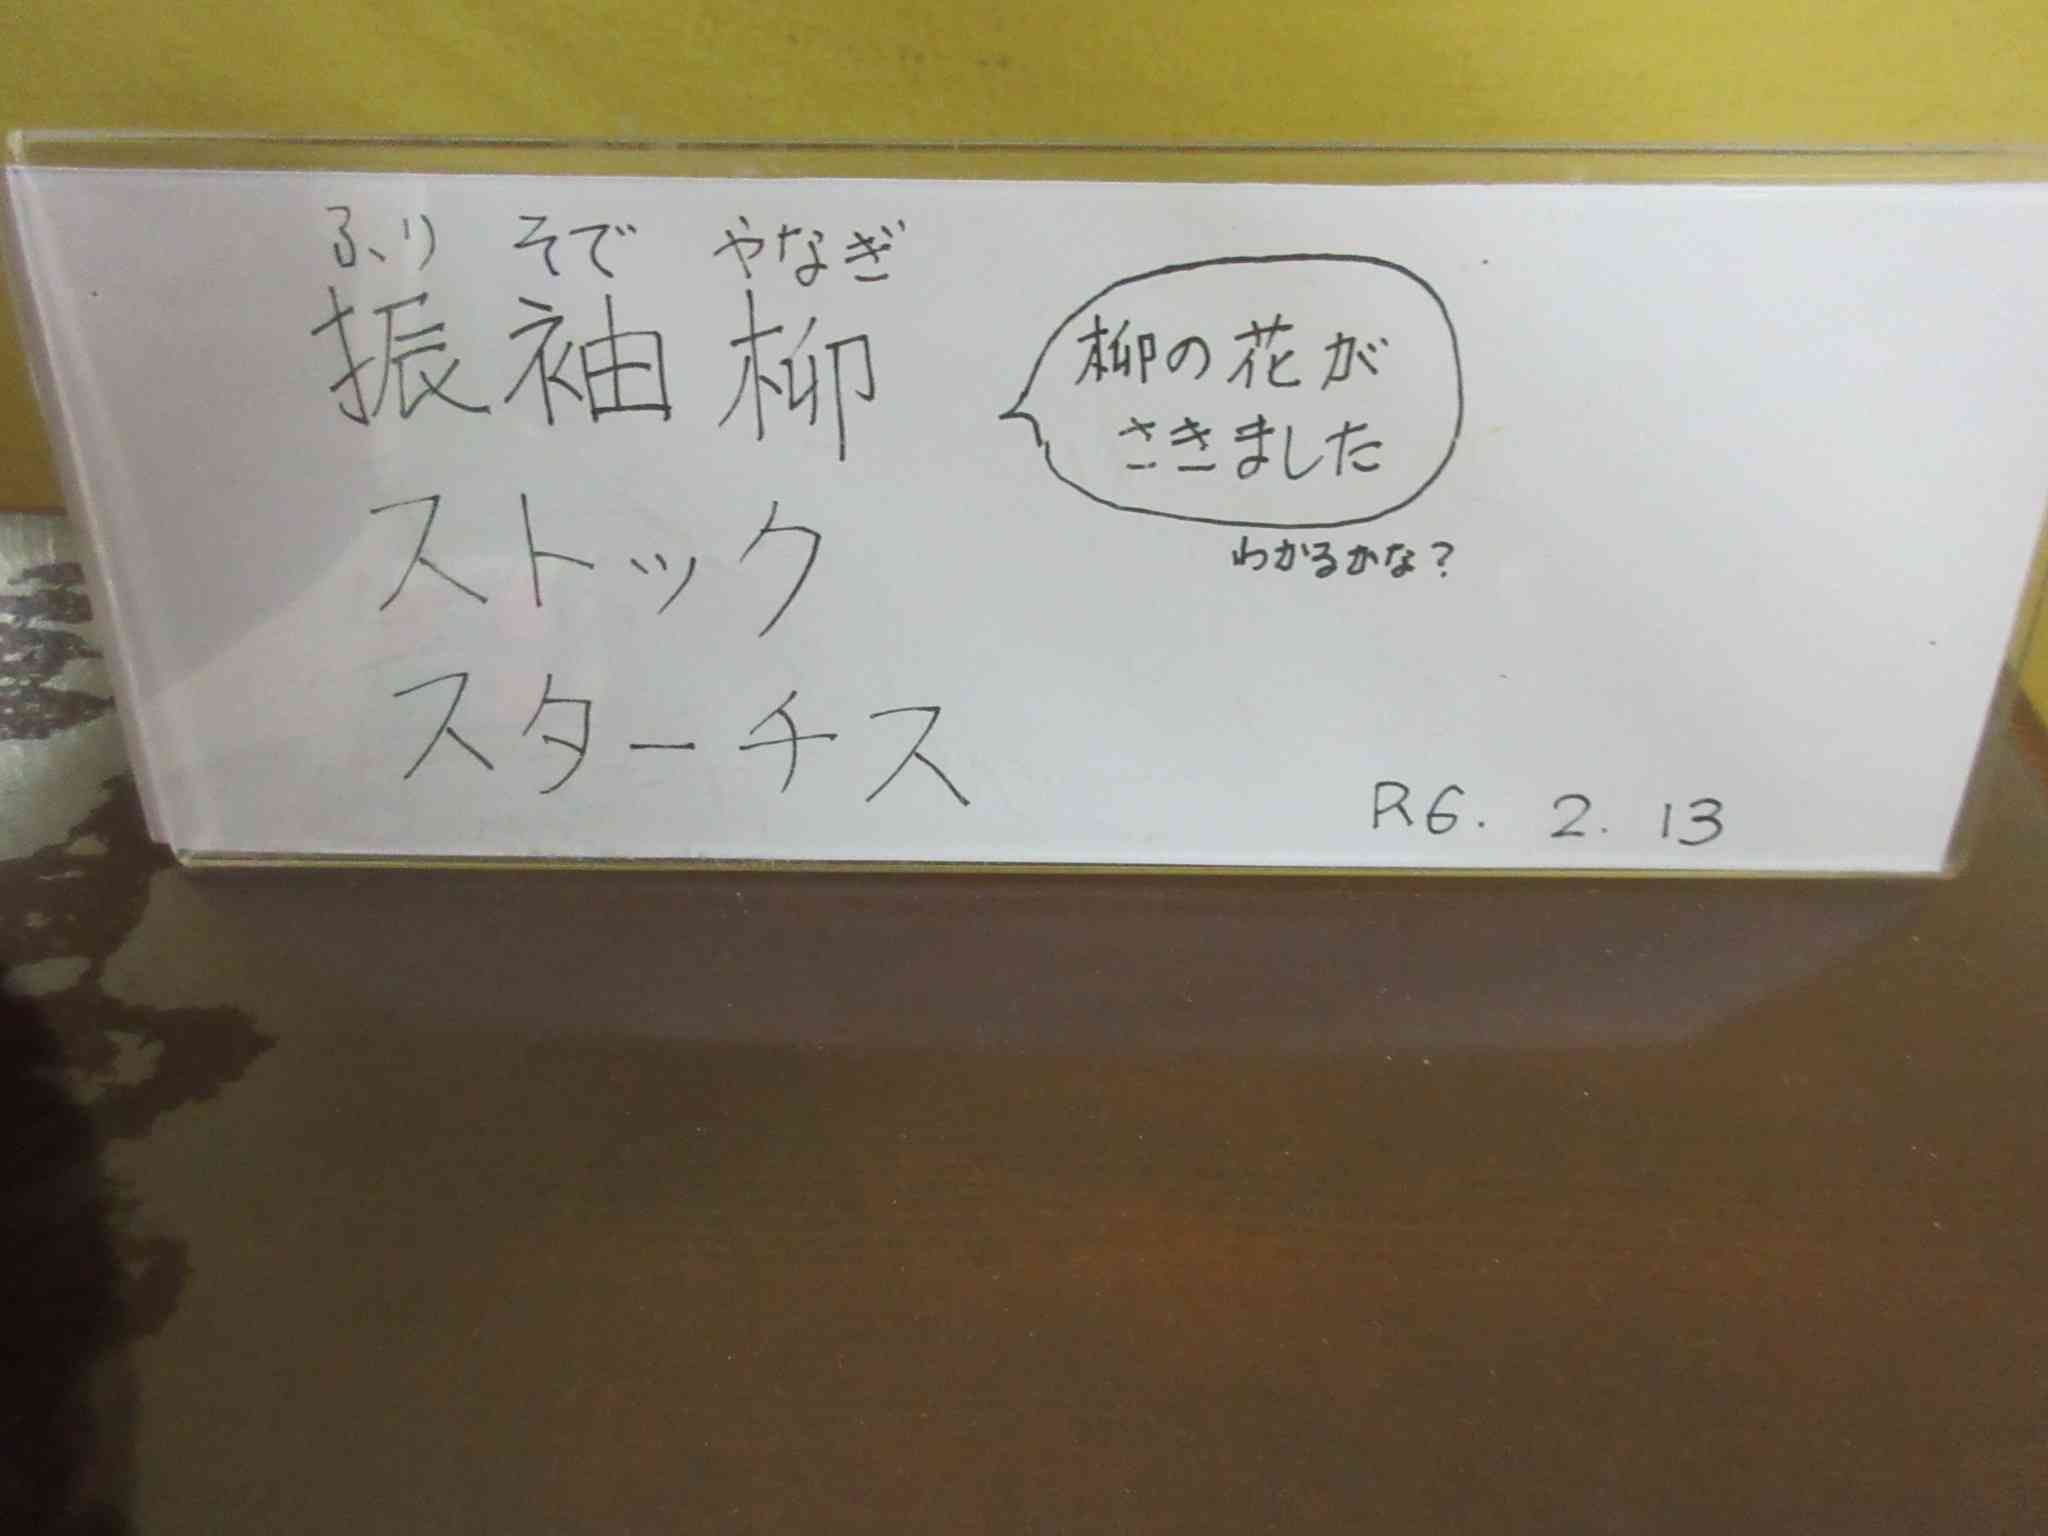 ふり そで やなぎ
振袖柳
柳の花が
さきました
わかるかな?
ストック
スターチス
R6. 2. 13